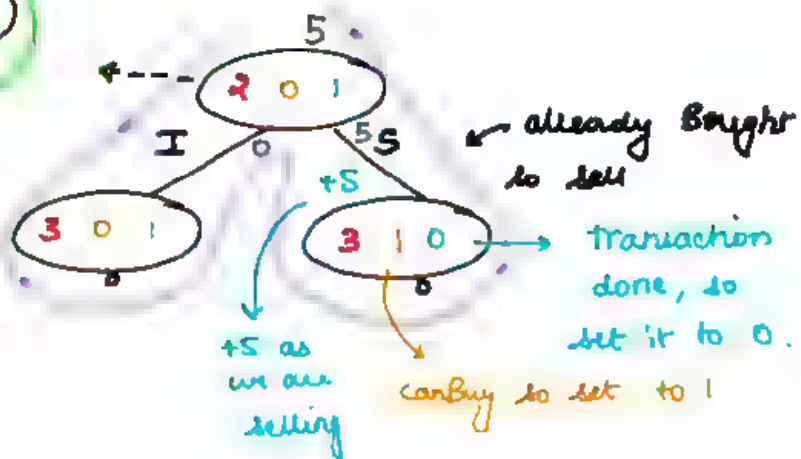 5
2 0 1
I 0 5 S
already Bought
so sell
+5
3 0 1
3 1 0
0
0
Transaction
done, so
set it to 0.
+5 as
we are
selling
canBuy so set to 1